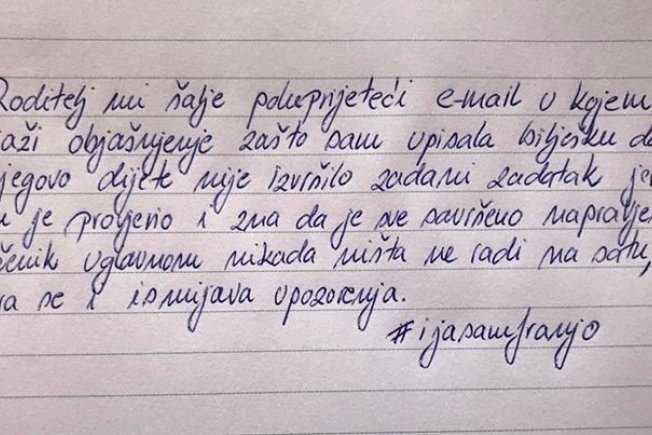 Roditelj mi šalje poluprijeteći e-mail u kojem
aži objašnjenje zašto sam upisala bilješku da
jegovo dijete nije izvršilo zadani zadatak jer
u je provjerio i zna da je sve savršeno napravljen
čenik uglavnom nikada ništa ne radi na satu,
ra se i ismijava upozorenja.
#ijasamfranjo